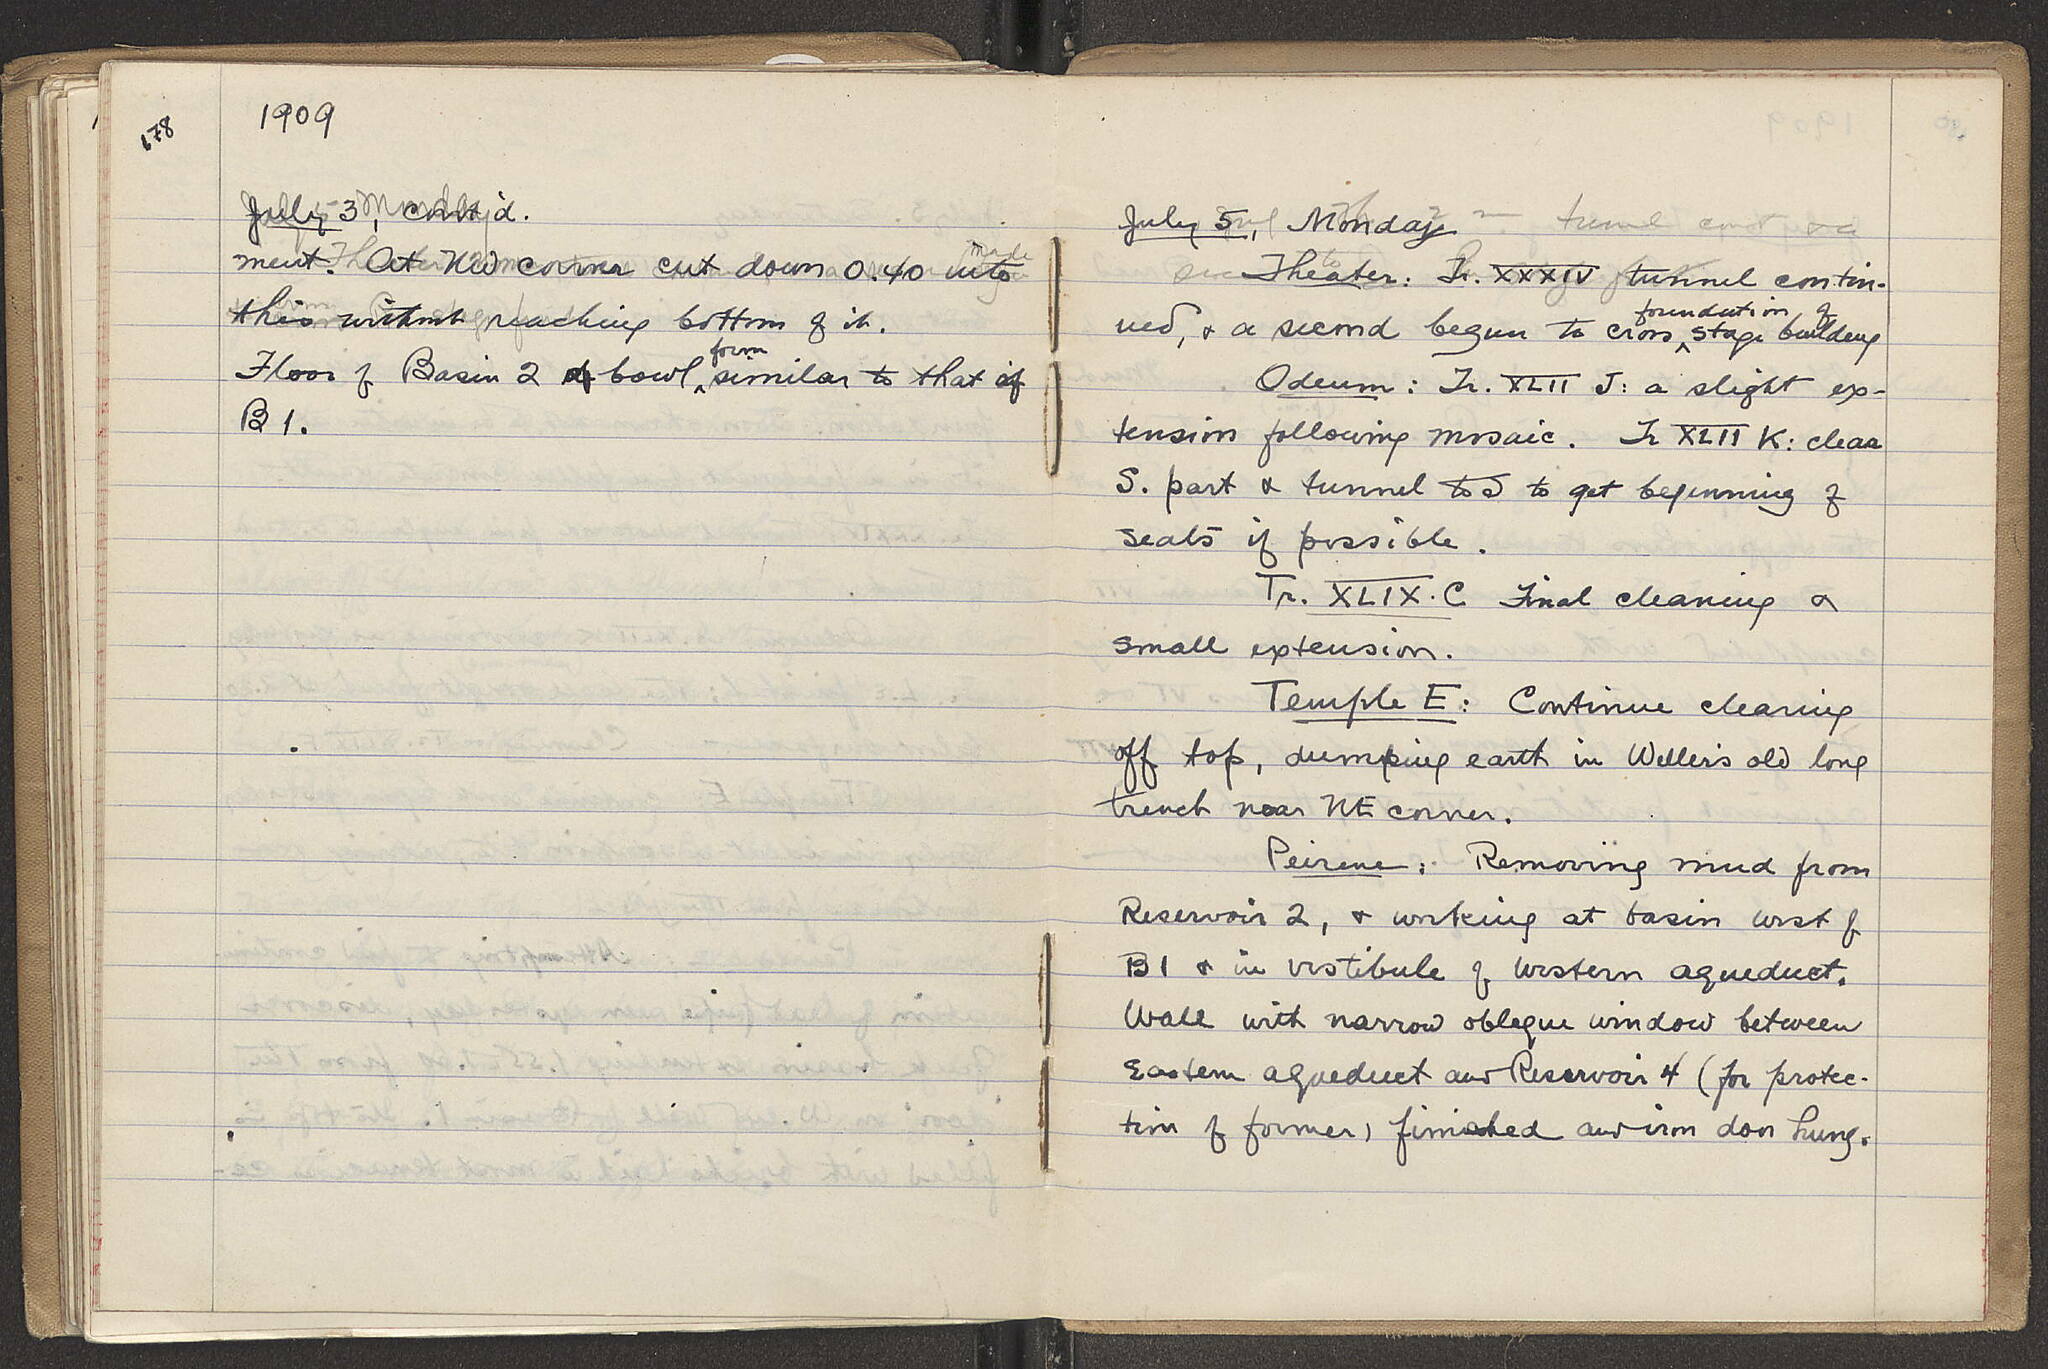 178
1909
July 3, cont'd.
ment. At NW corner cut down 0.40 into
this without reaching bottom of it.
form
Floor of Basin 2 bowl, similar to that of
B 1.
July 5, Monday
Theater: Tr. XXXIV tunnel contin-
foundation of
ued, & a second begun to cross stage building
Odeum: Tr. XLII J: a slight ex-
tension following mosaic. Tr XLII K: clear
S. part & tunnel to S to get beginning of
seats if possible.
Tr. XLIX.C Final cleaning &
small extension.
Temple E: Continue clearing
off top, dumping earth in Weller's old long
trench near NE corner.
Peirene: Removing mud from
Reservoir 2, & working at basin west of
B 1 & in vestibule of western aqueduct.
Wall with narrow oblique window between
Eastern aqueduct and Reservoir 4 (for protec-
tion of former) finished and iron door hung.